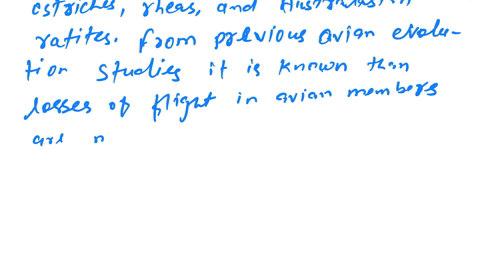 ostriches, rheas, and Australasian
ratites. From previous avian evolu-
tion studies it is known than
losses of flight in avian members
are n